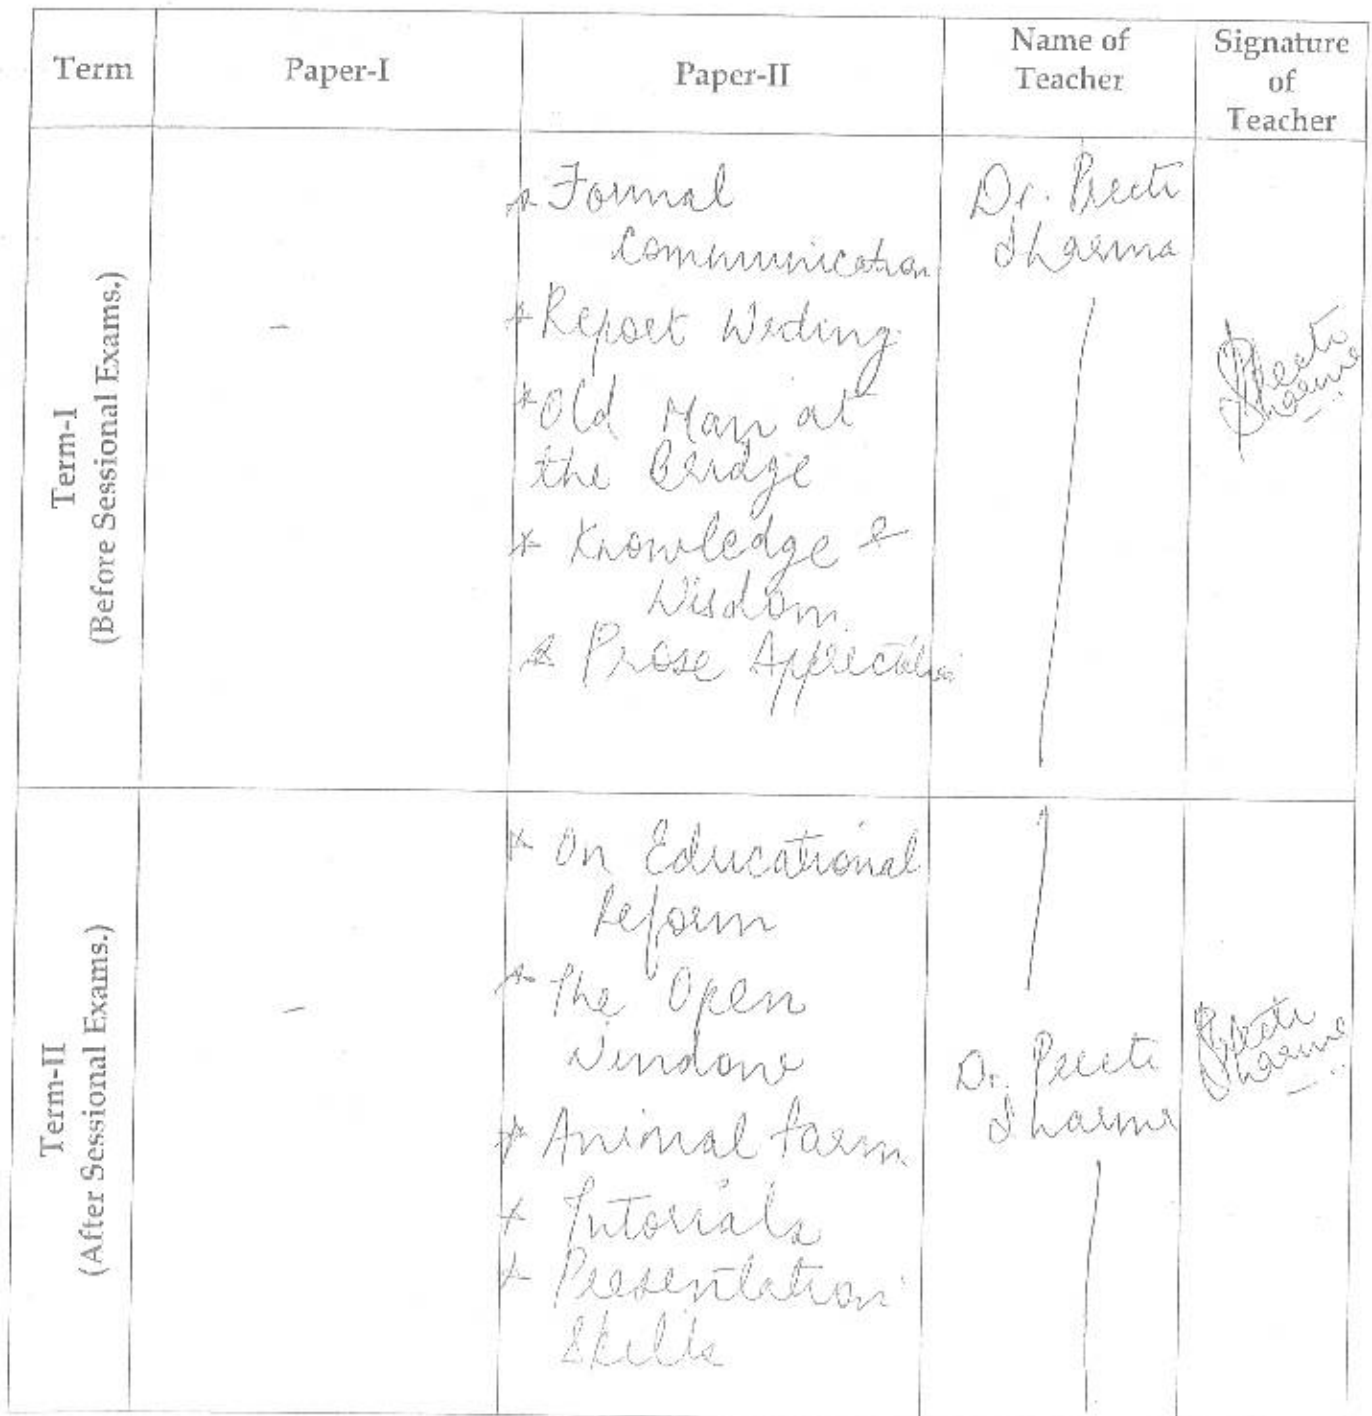 Term
Paper-I
Paper-II
Name of
Teacher
Signature
of
Teacher
Term-I
(Before Sessional Exams.)
-
* Formal
Communication
* Report Writing
* Old Man at
the Bridge
* Knowledge &
Wisdom
* Prose Appreciation
Dr. Preeti
Sharma
Preeti
Sharma
Term-II
(After Sessional Exams.)
-
* On Educational
Reform
* The Open
Window
* Animal Farm
* Tutorials
* Presentation
Skills
Dr. Preeti
Sharma
Preeti
Sharma